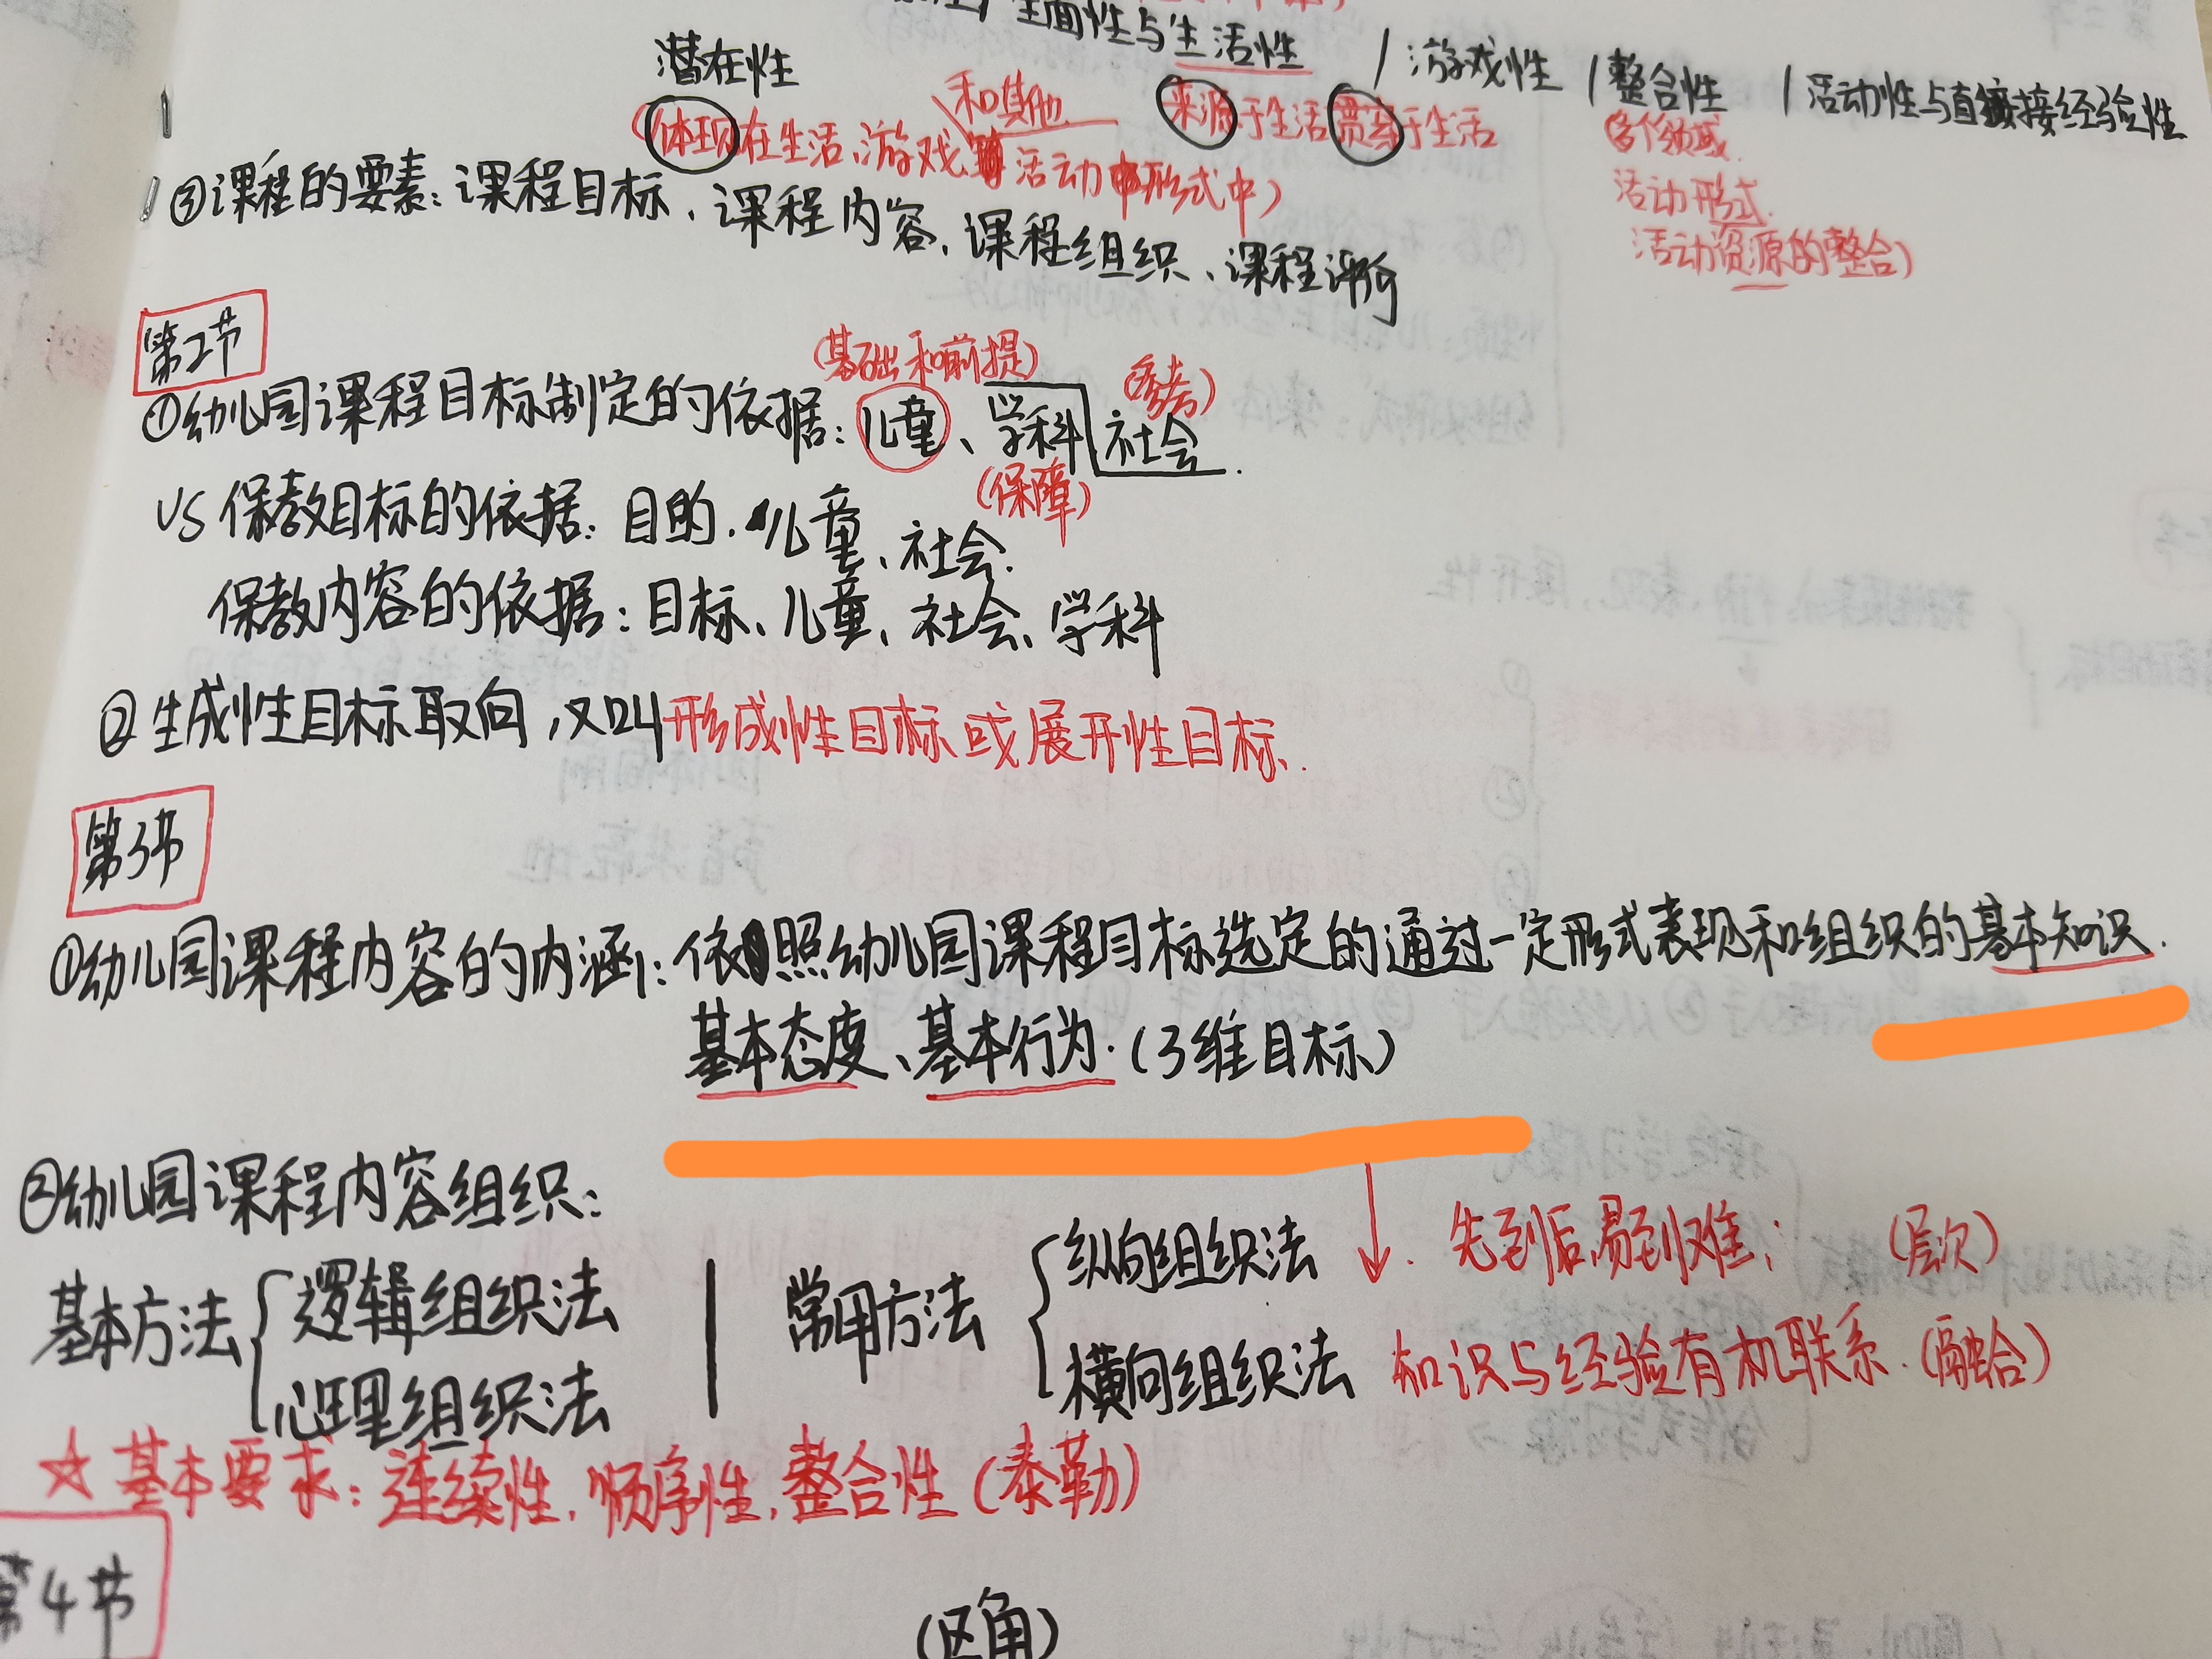 全面性与生活性 / 游戏性 / 整合性 / 活动性与直接经验性
潜在性
(体现在生活、游戏和其他活动形式中)
来源于生活贯穿于生活
(各个领域.
活动形式.
活动资源的整合)
③课程的要素:课程目标、课程内容、课程组织、课程评价
第2节
(基础和前提) (参考)
①幼儿园课程目标制定的依据:儿童、学科 社会.
(保障)
VS 保教目标的依据:目的、儿童、社会.
保教内容的依据:目标、儿童、社会、学科
②生成性目标取向,又叫形成性目标或展开性目标.
第3节
①幼儿园课程内容的内涵:依照幼儿园课程目标选定的通过一定形式表现和组织的基本知识.
基本态度、基本行为.(3维目标)
②幼儿园课程内容组织:
基本方法 逻辑组织法 心理组织法
常用方法
纵向组织法 ↓. 先到后,易到难; (层次)
横向组织法 知识与经验有机联系.(融合)
☆基本要求:连续性,顺序性,整合性(泰勒)
第4节
(区角)